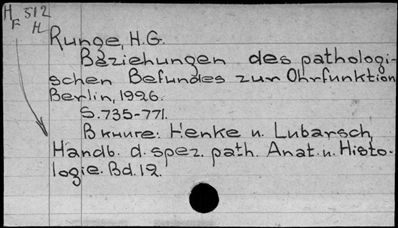 H 512
F H
Runge, H.G.
Beziehungen des pathologi-
schen Befundes zur Ohrfunktion
Berlin, 1926.
S. 735-771.
В книге: Henke u. Lubarsch,
Handb. d. spez. path. Anat. u. Histo-
logie. Bd. 12.